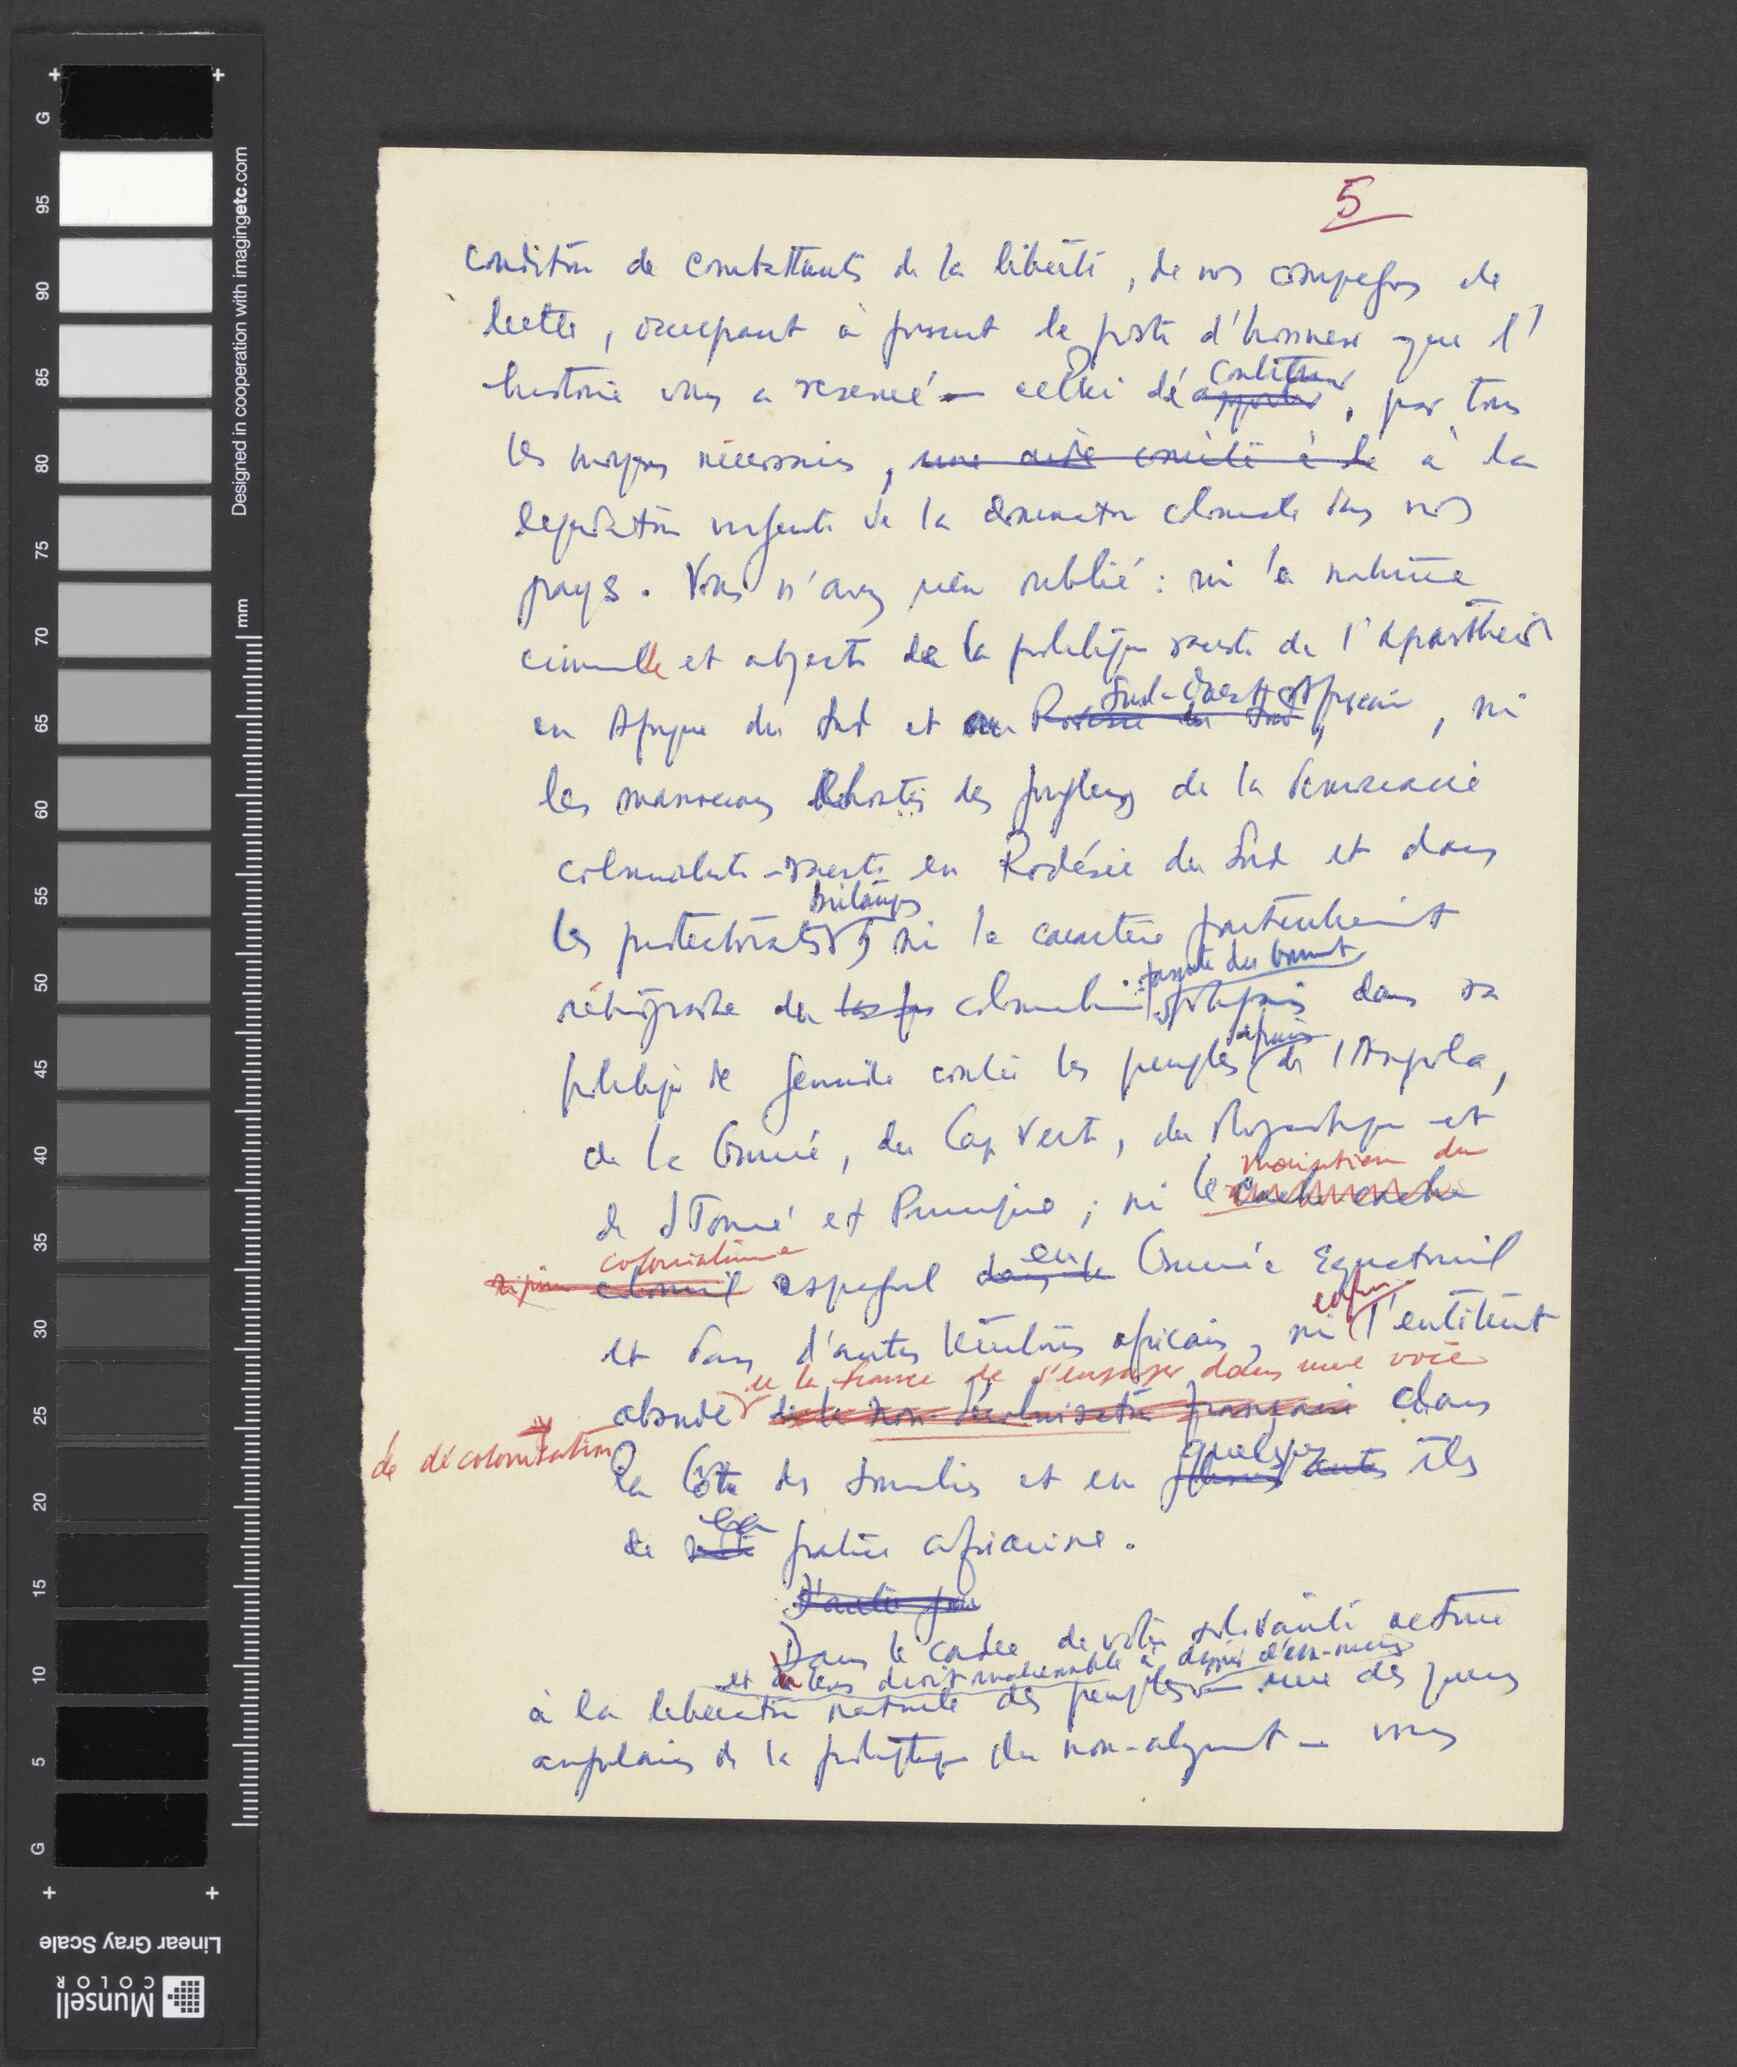 5
condition de combattants de la liberté, de nos compagnons de
lutte, occupant à présent le poste d'honneur que l'
histoire vous a réservé — celui de contribuer, par tous
les moyens nécessaires, une aide concrète à la à la
liquidation urgente de la domination coloniale dans nos
pays. Vous n'avez rien oublié : ni la nature
criminelle et abjecte de la politique raciste de l'apartheid
en Afrique du Sud et Rodésie du Sud Sud-Ouest Africain, ni
les manoeuvres des jongleurs de la démocratie
colonialiste-raciste en Rodésie du Sud et dans
les protectorats britaniques, ni le caractère particulièrement
rétrograde du colonialisme portugais dans sa
politique de génocide contre les peuples africains de l'Angola,
de la Guinée, du Cap Vert, du Mozambique et
de S Tomé et Principe ; ni le du
colonialisme colonial espagnol dans la en Guinée Equatorial
et dans d'autres territoires africains, ni enfin l'entêtement
absurde de la France de s'engager dans une voie de la non-décolonisation française dans
de décolonisation
la Côte des Somalies et en quelques autres îles
de la patrie africaine.
D'autre part
Dans le cadre de votre solidarité active
et à leur droit inaliénable à disposer d'eux-mêmes
à la libération nationale des peuples — une des pierres
angulaires de la politique du non-alignement — vous
Designed in cooperation with imagingetc.com
mm
G
95
90
85
80
75
70
65
60
55
50
45
40
35
30
25
20
15
10
5
G
Linear Gray Scale
Munsell
COLOR